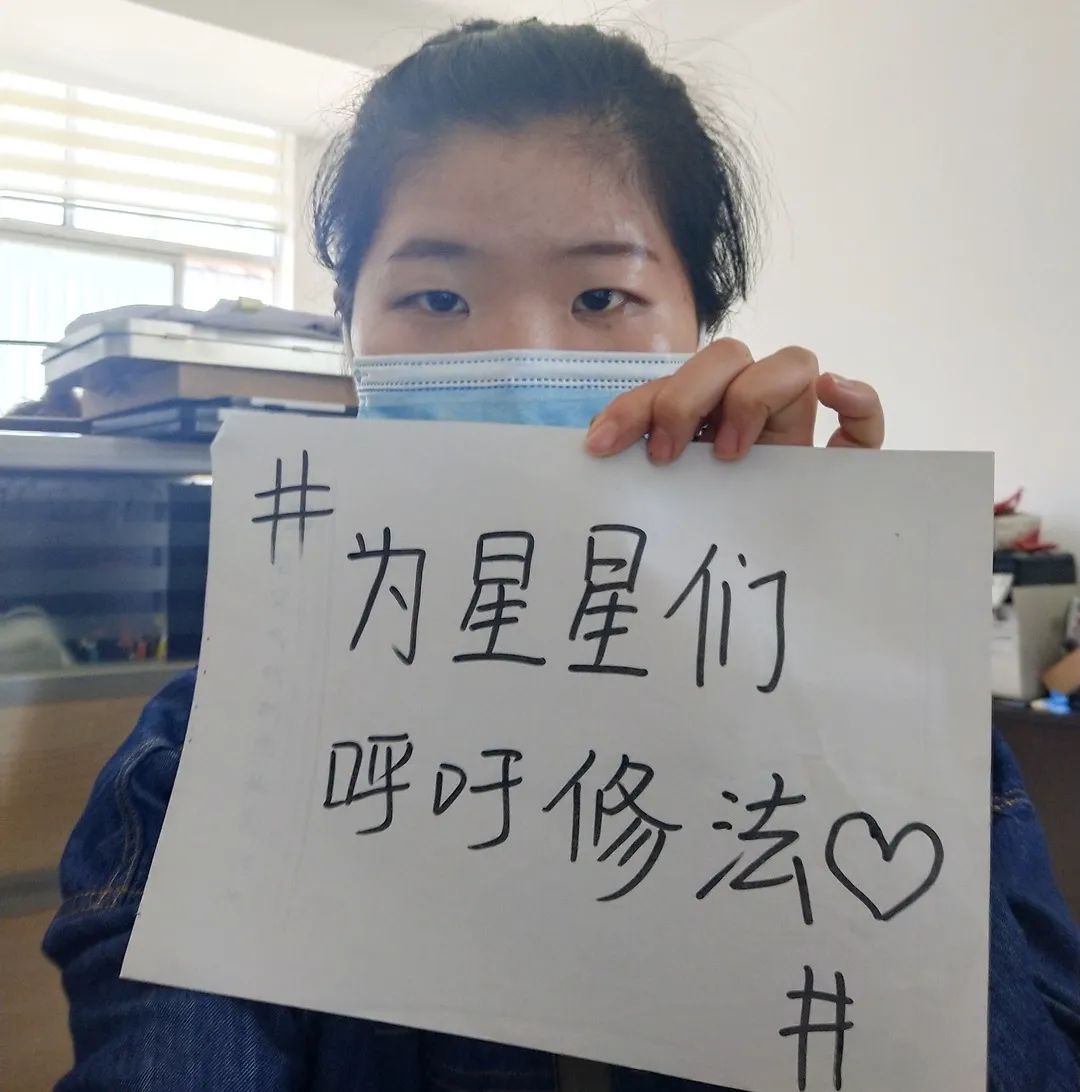 #为星星们
呼吁修法♡
#